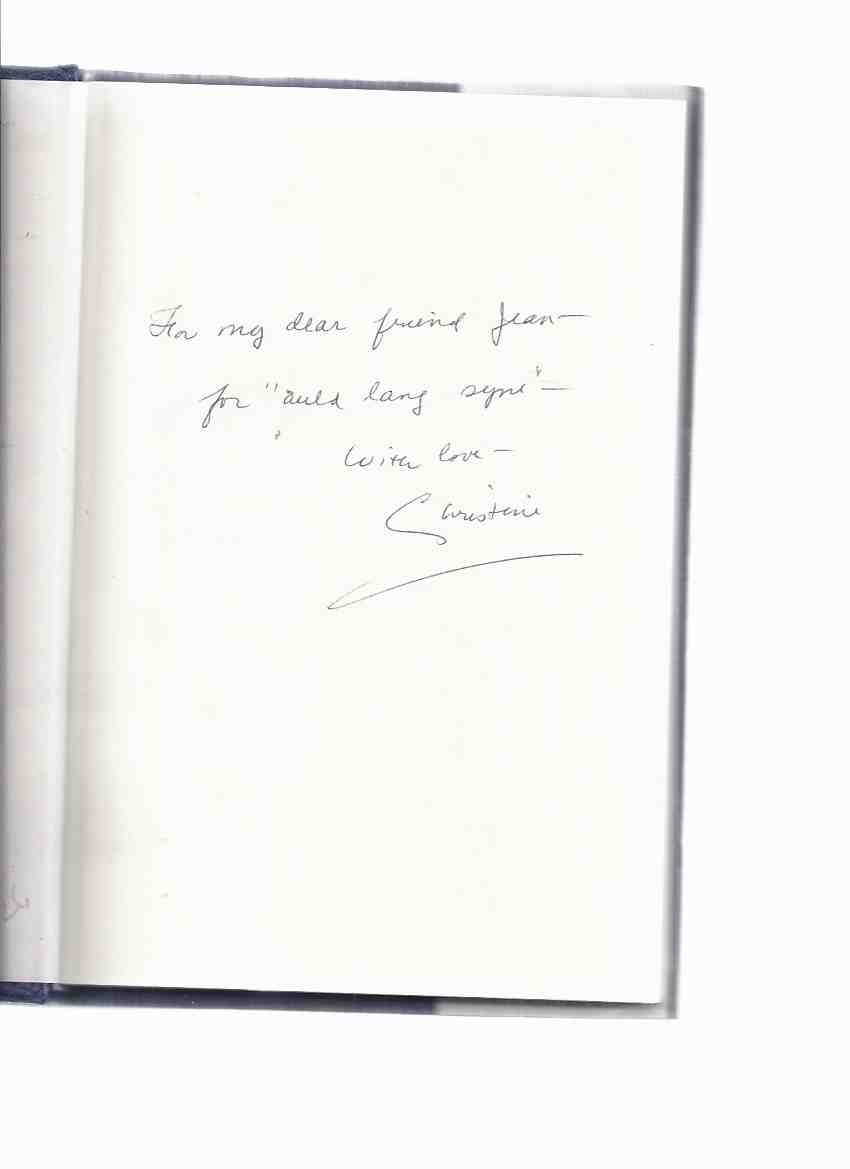 For my dear friend Jean—
for "auld lang syne"—
With love—
Christine